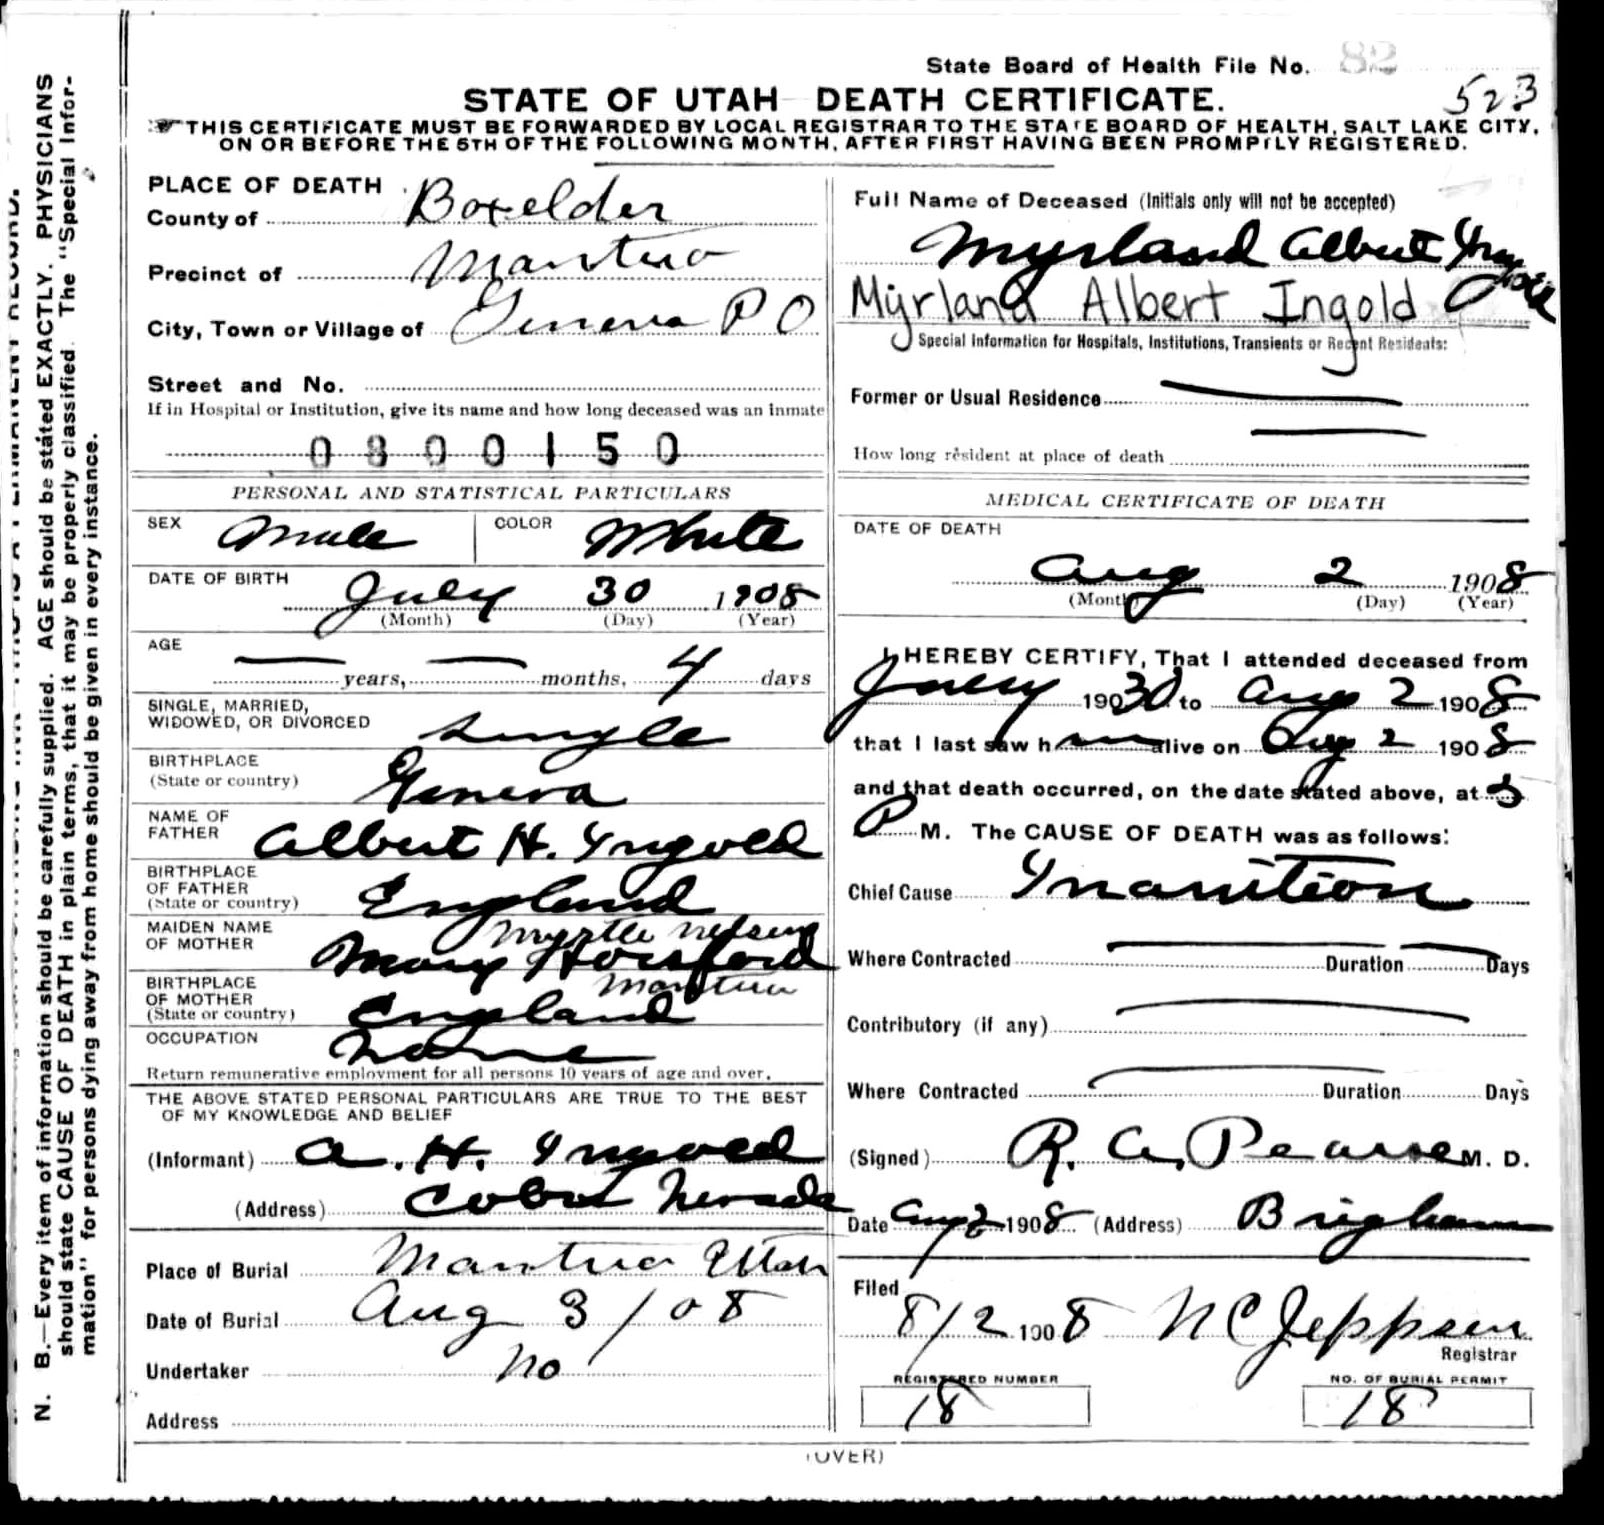 State Board of Health File No. 82
523
STATE OF UTAH DEATH CERTIFICATE.
THIS CERTIFICATE MUST BE FORWARDED BY LOCAL REGISTRAR TO THE STATE BOARD OF HEALTH, SALT LAKE CITY,
ON OR BEFORE THE 5TH OF THE FOLLOWING MONTH, AFTER FIRST HAVING BEEN PROMPTLY REGISTERED.
PLACE OF DEATH
County of Boxelder
Precinct of Mantua
City, Town or Village of Geneva P O
Street and No.
If in Hospital or Institution, give its name and how long deceased was an inmate
0800150
PERSONAL AND STATISTICAL PARTICULARS
SEX Male COLOR White
DATE OF BIRTH July 30 1908
(Month) (Day) (Year)
AGE
years, months, 4 days
SINGLE, MARRIED,
WIDOWED, OR DIVORCED Single
BIRTHPLACE
(State or country) Geneva
NAME OF
FATHER Albert H. Yngold
BIRTHPLACE
OF FATHER
(State or country) England
MAIDEN NAME Myrtle Nelsen
OF MOTHER Mary Horsford
BIRTHPLACE Mantua
OF MOTHER
(State or country) England
OCCUPATION None
Return remunerative employment for all persons 10 years of age and over.
THE ABOVE STATED PERSONAL PARTICULARS ARE TRUE TO THE BEST
OF MY KNOWLEDGE AND BELIEF
(Informant) A. H. Yngold
(Address) Cobre Nevada
Place of Burial Mantua Utah
Date of Burial Aug 3/08
Undertaker No
Address
Full Name of Deceased (Initials only will not be accepted)
Myrland Albert Yngold
Myrland Albert Ingold
Special Information for Hospitals, Institutions, Transients or Recent Residents:
Former or Usual Residence
How long resident at place of death
MEDICAL CERTIFICATE OF DEATH
DATE OF DEATH
Aug 2 1908
(Month) (Day) (Year)
I HEREBY CERTIFY, That I attended deceased from
July 190 30 to Aug 2 1908
that I last saw him alive on Aug 2 1908
and that death occurred, on the date stated above, at 3
P M. The CAUSE OF DEATH was as follows:
Chief Cause Inanition
Where Contracted Duration Days
Contributory (if any)
Where Contracted Duration Days
(Signed) R. A. Pearse M. D.
Date Aug 2 1908 (Address) Brigham
Filed
8/2 1908 N C Jeppsen
Registrar
REGISTERED NUMBER NO. OF BURIAL PERMIT
18 18
(OVER)
N. B.—Every item of information should be carefully supplied. AGE should be stated EXACTLY. PHYSICIANS
should state CAUSE OF DEATH in plain terms, that it may be properly classified. The "Special Infor-
mation" for persons dying away from home should be given in every instance.